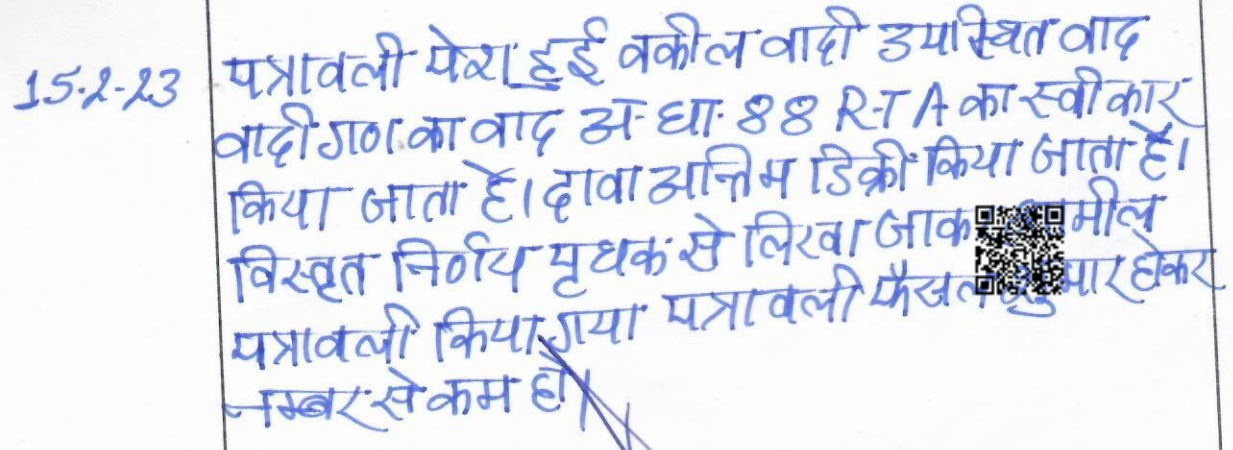 15-2-23 पत्रावली पेश हुई वकील वादी उपस्थित वाद
वादीगण का वाद अ-धा-88 R-T A का स्वीकार
किया जाता है। दावा अन्तिम डिक्री किया जाता है।
विस्तृत निर्णय पृथक से लिखा जाक मील
पत्रावली किया गया पत्रावली फैसल मार होकर
नम्बर से कम हो।